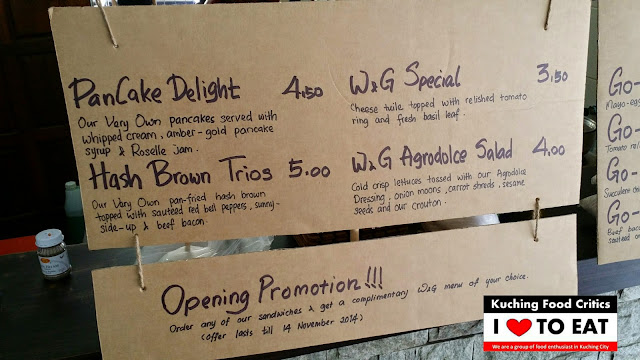 PanCake Delight 4.50
Our Very Own pancakes served with
whipped cream, amber-gold pancake
syrup & Roselle jam.
Hash Brown Trios 5.00
Our Very Own pan-fried hash brown
topped with sauteed red bell peppers, sunny-
side-up & beef bacon.
W&G Special 3.50
Cheese tuile topped with relished tomato
ring and fresh basil leaf.
W&G Agrodolce Salad 4.00
Cold crisp lettuces tossed with our Agrodolce
Dressing, onion moons, carrot shreds, sesame
seeds and our crouton.
Go-
Mayo-egg
Go-
Tomato rel
Go-
Succulent
Go-
Beef bac
sauteed
Opening Promotion!!!
Order any of our sandwiches & get a complimentary W&G menu of your choice.
(offer lasts till 14 November 2014)
Kuching Food Critics
I ❤ TO EAT
We are a group of food enthusiast in Kuching City